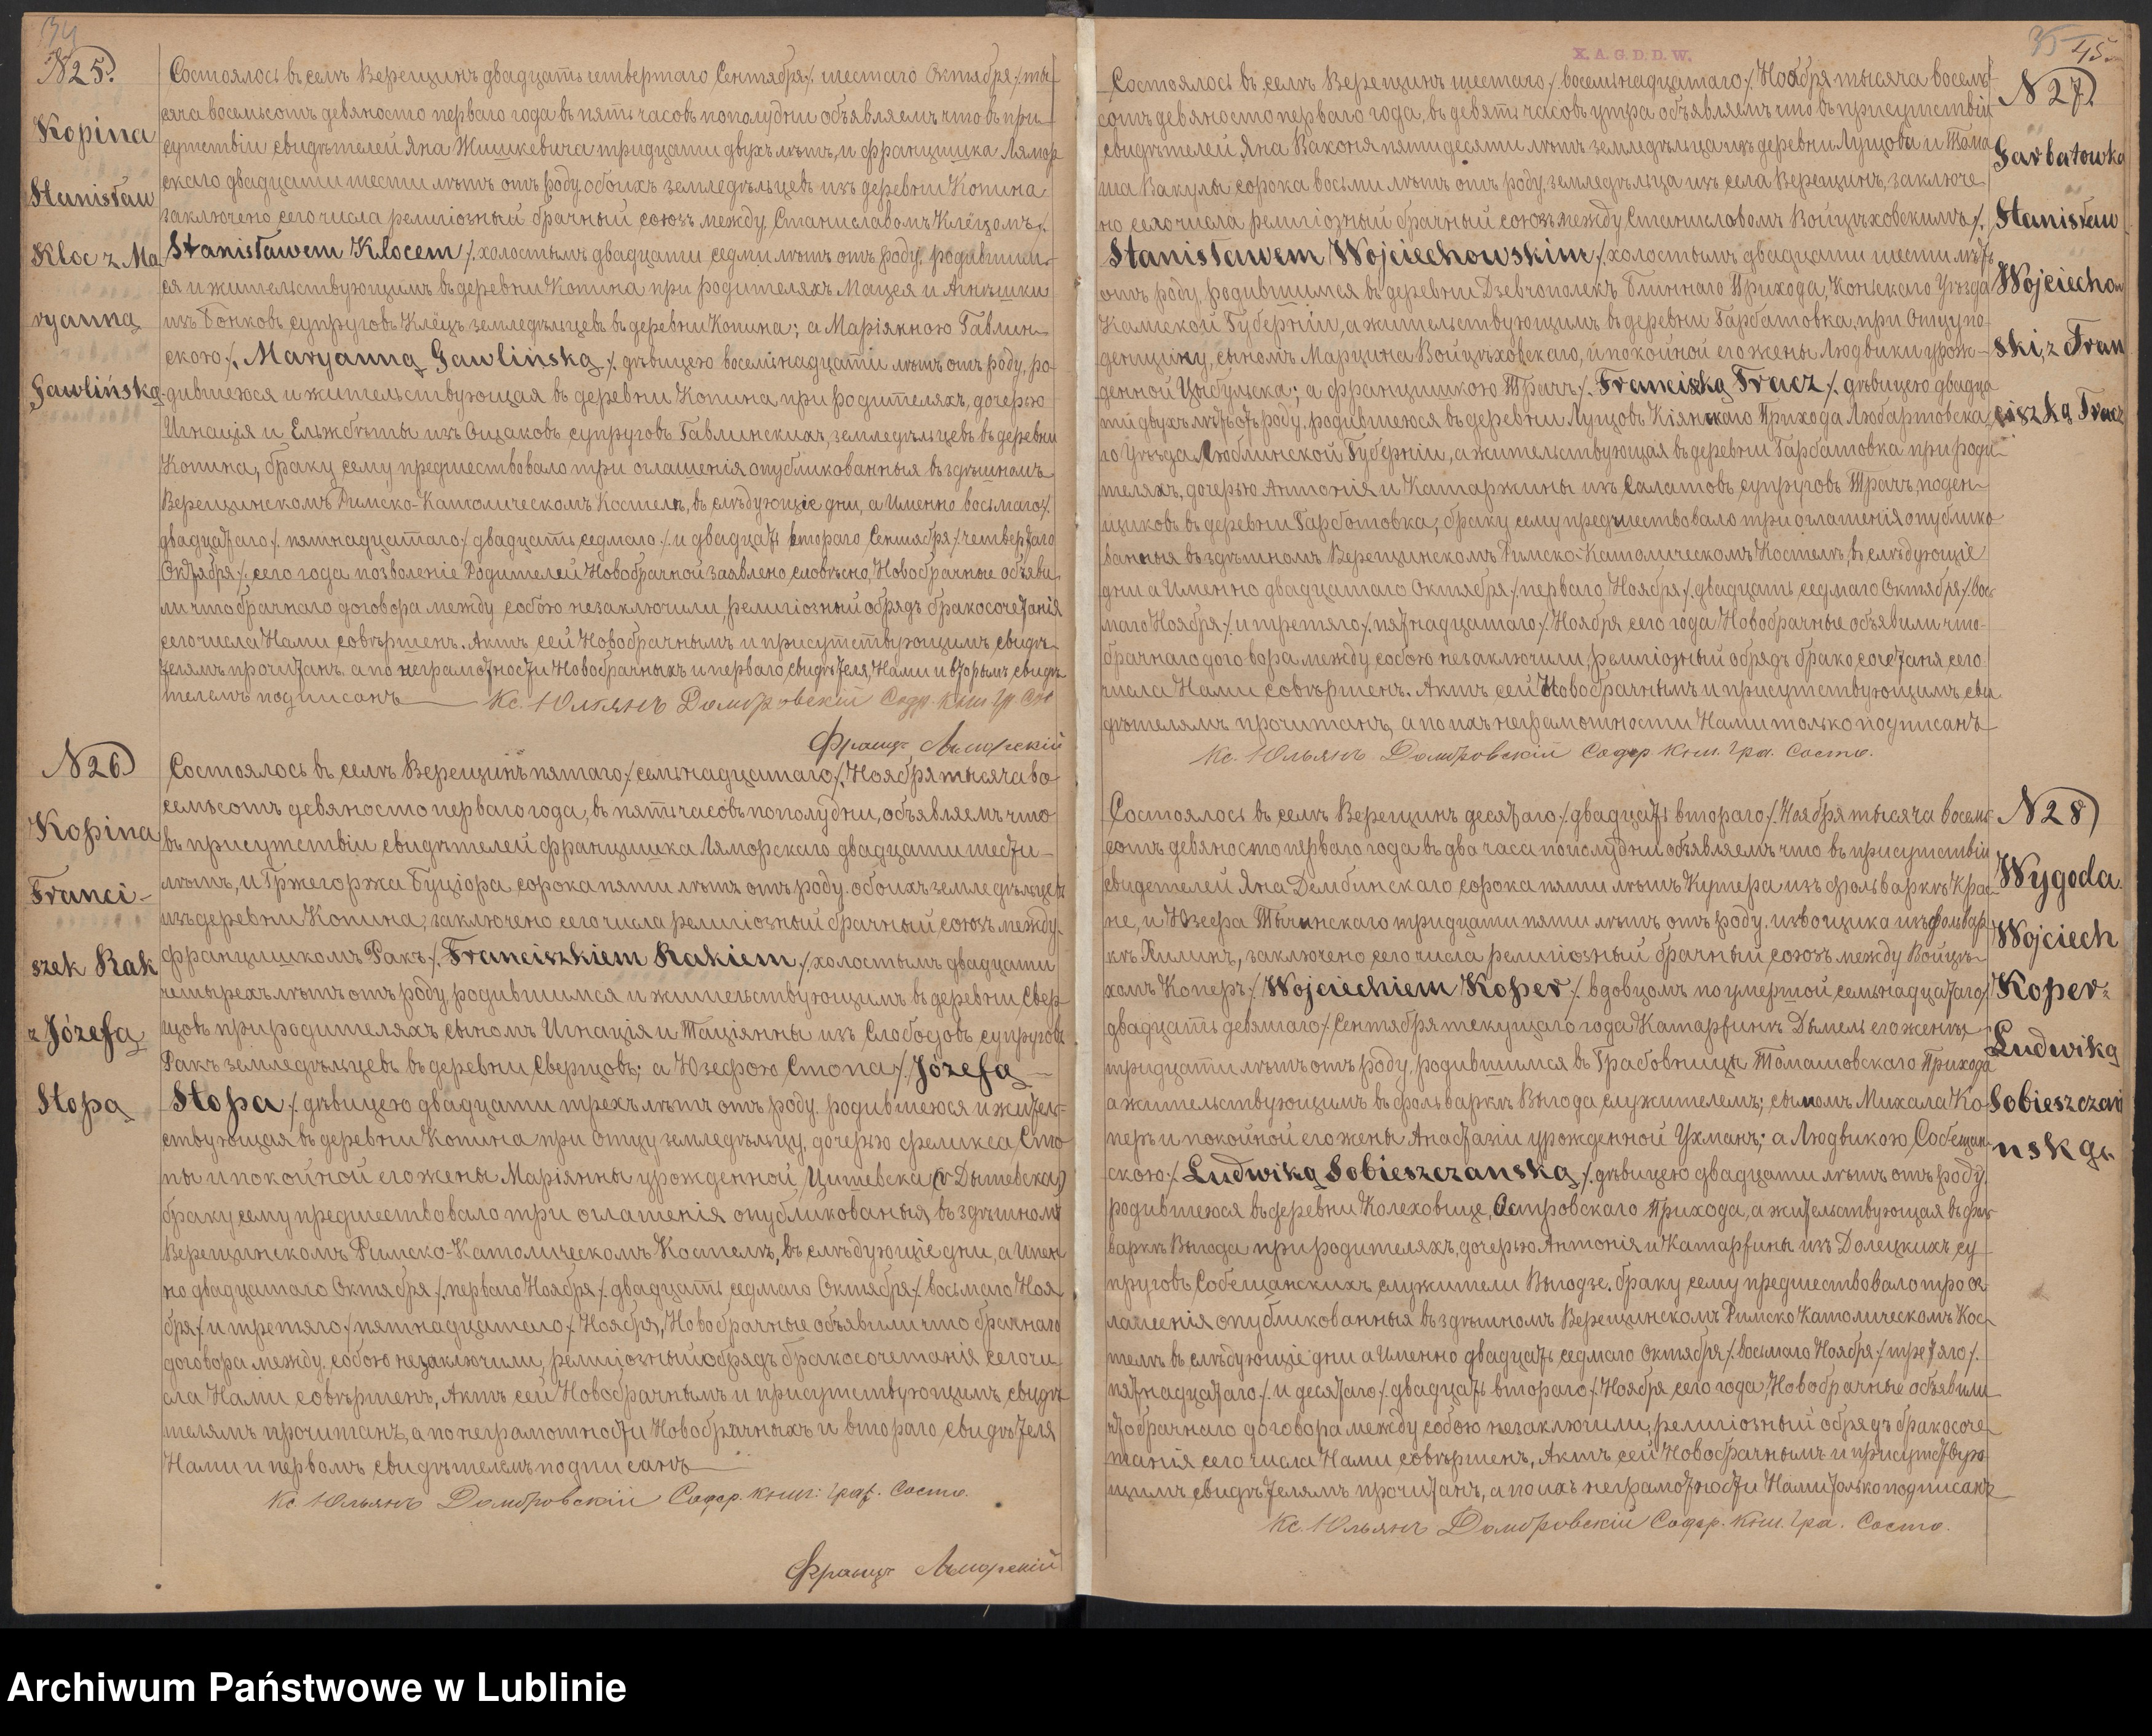 34
N25.
Kopina
Stanisław
Kloc z Ma
ryanną
Gawlińską
Состоялось въ селѣ Верещинъ двадцать четвертаго Сентября /. шестаго Октября /. ты-
сяча восемьсотъ девяносто перваго года въ пять часовъ пополудни объявляемъ что въ при-
сутствіи свидѣтелей Яна Жишкевича тридцати двухъ лѣтъ, и Францишка Лямор-
скаго двадцати шести лѣтъ отъ роду обоихъ земледѣльцевъ изъ деревни Копина
заключено сего числа религіозный брачный союзъ между Станиславомъ Клёцомъ /.
Stanisławem Klocem /. холостымъ двадцати седми лѣтъ отъ роду, родившим-
ся и жительствующимъ въ деревни Копина при родителяхъ Мацея и Агнѣшки
изъ Бонковъ супруговъ Клёцъ земледѣльцевъ въ деревни Копина; а Маріянною Гавлин-
скою /. Maryanną Gawlińską /. дѣвицею восемнадцати лѣтъ отъ роду, ро-
дившеюся и жительствующая въ деревни Копина при родителяхъ, дочерью
Игнація и Ельжбѣты изъ Ощаковъ супруговъ Гавлинскихъ, земледѣльцевъ въ деревни
Копина, браку сему предшествовало три оглашенія опубликованныя въ здѣшномъ
Верещинскомъ Римско-Католическомъ Костелѣ, въ слѣдующіе дни, а Именно восьмаго /.
двадцатаго /. пятнадцатаго /. двадцать седмаго /. и двадцать втораго Сентября /. четвертаго
Октября /. сего года позволеніе Родителей Новобрачной заявлено словѣсно, Новобрачные объяви-
ли что брачнаго договора между собою незаключили, религіозный обрядъ бракосочетанія
сего числа Нами совѣршенъ. Актъ сей Новобрачнымъ и присутствующимъ свидѣ-
телямъ прочитанъ а по неграмотности Новобрачныхъ и перваго свидѣтеля, Нами и вторымъ свидѣ-
телемъ подписанъ — Кс. Юльянъ Домбровскій Содр. книг гр. Сос
Франц Ляморскій
N26
Kopina
Franci-
szek Rak
z Józefą
Stopą
Состоялось въ селѣ Верещинъ пятаго /. семьнадцатаго /. Ноября тысяча во-
семьсотъ девяносто перваго года, въ пять часовъ пополудни, объявляемъ что
въ присутствіи свидѣтелей Францишка Ляморскаго двадцати шести-
лѣтъ, и Гржегоржа Буціора сорока пяти лѣтъ отъ роду обоихъ земледѣльцевъ
изъ деревни Копина, заключено сего числа религіозный брачный союзъ между
Францишкомъ Ракъ /. Franciszkiem Rakiem /. холостымъ двадцати
четырехъ лѣтъ отъ роду родившимся и жительствующимъ въ деревни Свер-
щовъ при родителяхъ сыномъ Игнація и Таціянны изъ Слободовъ супруговъ
Ракъ земледѣльцевъ въ деревни Сверщовъ; а Юзефою Стопа /. Józefą
Stopą /. дѣвицею двадцати трехъ лѣтъ отъ роду родившеюся и житель-
ствующая въ деревни Копина при отцу земледѣльцу, дочерью Феликса Сто-
пы и покойной его жены Маріянны урожденной Цишевска (v Дышевска)
браку сему предшествовало три оглашенія опубликованыя въ здѣшномъ
Верещинскомъ Римско-Католическомъ Костелѣ, въ слѣдующіе дни, а Имен-
но двадцатаго Октября /. перваго Ноября /. двадцать седмаго Октября /. восьмаго Ноя-
бря /. и третяго /. пятнадцатаго /. Ноября, Новобрачные объявили что брачнаго
договора между собою незаключили, религіозный обрядъ бракосочетанія сего чи-
сла Нами совѣршенъ, Актъ сей Новобрачнымъ и присутствующимъ свидѣ-
телямъ прочитанъ, а по неграмотности Новобрачныхъ и втораго свидѣтеля
Нами и первомъ свидѣтелемъ подписанъ
Кс. Юльянъ Домбровскій Содер. книг: граж. Состо.
Франц Ляморскій
X. A. G. D. D. W.
35 45
N27.
Garbatówka
Stanisław
Wojciechow
ski, z Fran
ciszką Tracz
Состоялось въ селѣ Верещинъ шестаго /. восемьнадцатаго /. Ноября тысяча восемь-
сотъ девяносто перваго года, въ девять часовъ утра объявляемъ что въ присутствіи
свидѣтелей Яна Ваконя пятидесяти лѣтъ земледѣльца изъ деревни Луцовъ и Тома-
ша Вакулы сорока восьми лѣтъ отъ роду земледѣльца изъ села Верещинъ, заключе-
но сего числа религіозный брачный союзъ между Станиславомъ Войцѣховскимъ /.
Stanisławem Wojciechowskim /. холостымъ двадцати шести лѣтъ
отъ роду, родившимся въ деревни Дзевчополекъ Блиннаго Прихода, Конскаго Уѣзда
Камской Губерніи, а жительствующимъ въ деревни Гарбатовка, при Отцу по-
денщику, сыномъ Марцина Войцѣховскаго, и покойной его жены Людвики урож-
денной Цыбульска; а Францишкою Трачъ /. Franciszką Tracz /. дѣвицею двадца-
ти двухъ лѣтъ отъ роду, родившеюся въ деревни Луцовъ Кіянскаго Прихода Любартовска-
го Уѣзда Люблинской Губерніи, а жительствующая въ деревни Гарбатовка при роди-
теляхъ, дочерью Антонія и Катаржины изъ Салатовъ супруговъ Трачъ, поден-
щиковъ въ деревни Гарбатовка; браку сему предшествовало три оглашенія опублико-
ванныя въ здѣшномъ Верещинскомъ Римско-Католическомъ Костелѣ, въ слѣдующіе
дни а Именно двадцатаго Октября /. перваго Ноября /. двадцать седмаго Октября /. вось-
маго Ноября /. и третяго /. пятнадцатаго /. Ноября сего года Новобрачные объявили что-
брачнаго договора между собою незаключили, религіозный обрядъ бракосочетаня сего
числа Нами совѣршенъ. Актъ сей Новобрачнымъ и присутствующимъ сви-
дѣтелямъ прочитанъ, а по ихъ неграмотности Нами только подписанъ
Кс. Юльянъ Домбровскій Содер книг. Гра. Состо.
N28
Wygoda
Wojciech
Koper z
Ludwiką
Sobieszczań
nską.
Состоялось въ селѣ Верещинъ десятаго /. двадцать втораго /. Ноября тысяча восемь-
сотъ девяносто перваго года въ два часа пополудни объявляемъ что въ присутствіи
свидетелей Яна Дембинскаго сорока пяти лѣтъ Кучера изъ фольваркъ Крас-
не, и Юзефа Тычинскаго тридцати пяти лѣтъ отъ роду, извощика изъ фольвар-
къ Хилинъ, заключено сего числа религіозный брачный союзъ между Войцѣ-
хомъ Коперъ /. Wojciechiem Koper /. вдовцомъ по умершой семьнадцатаго /.
двадцать девятаго /. Сентября текущаго года Катаржинъ Дымель его женкѣ
тридцати лѣтъ отъ роду, родившимся въ Грабовницы Томашовскаго Прихода
а жительствующимъ въ фольваркѣ Выгода служителемъ; сыномъ Михала Ко-
перъ и покойной его жены Анастазіи урожденной Ухманъ; а Людвикою Собещан-
скою /. Ludwiką Sobieszczanską /. дѣвицею двадцати лѣтъ отъ роду,
родившеюся въ деревни Колеховице, Островскаго Прихода, а жительствующая въ фоль-
варкѣ Выгода при родителяхъ, дочерью Антонія и Катаржины изъ Долецкихъ су-
пруговъ Собещанскихъ служители Выгодзе. браку сему предшествовало три ог-
лашенія опубликованныя въ здѣшномъ Верещинскомъ Римско Католическомъ Кос-
телѣ въ слѣдующіе дни а Именно двадцать седмаго Октября /. восьмаго Ноября /. третяго /.
пятнадцатаго /. и десятаго /. двадцать втораго /. Ноября сего года Новобрачные объявили
что брачнаго договора между собою незаключили, религіозный обрядъ бракосоче-
танія сего числа Нами совѣршенъ, Актъ сей Новобрачнымъ и присутствую-
щимъ свидѣтелямъ прочитанъ, а по ихъ неграмотности Нами только подписанъ
Кс. Юльянъ Домбровскій Содер. книг. Гра. Состо.
Archiwum Państwowe w Lublinie